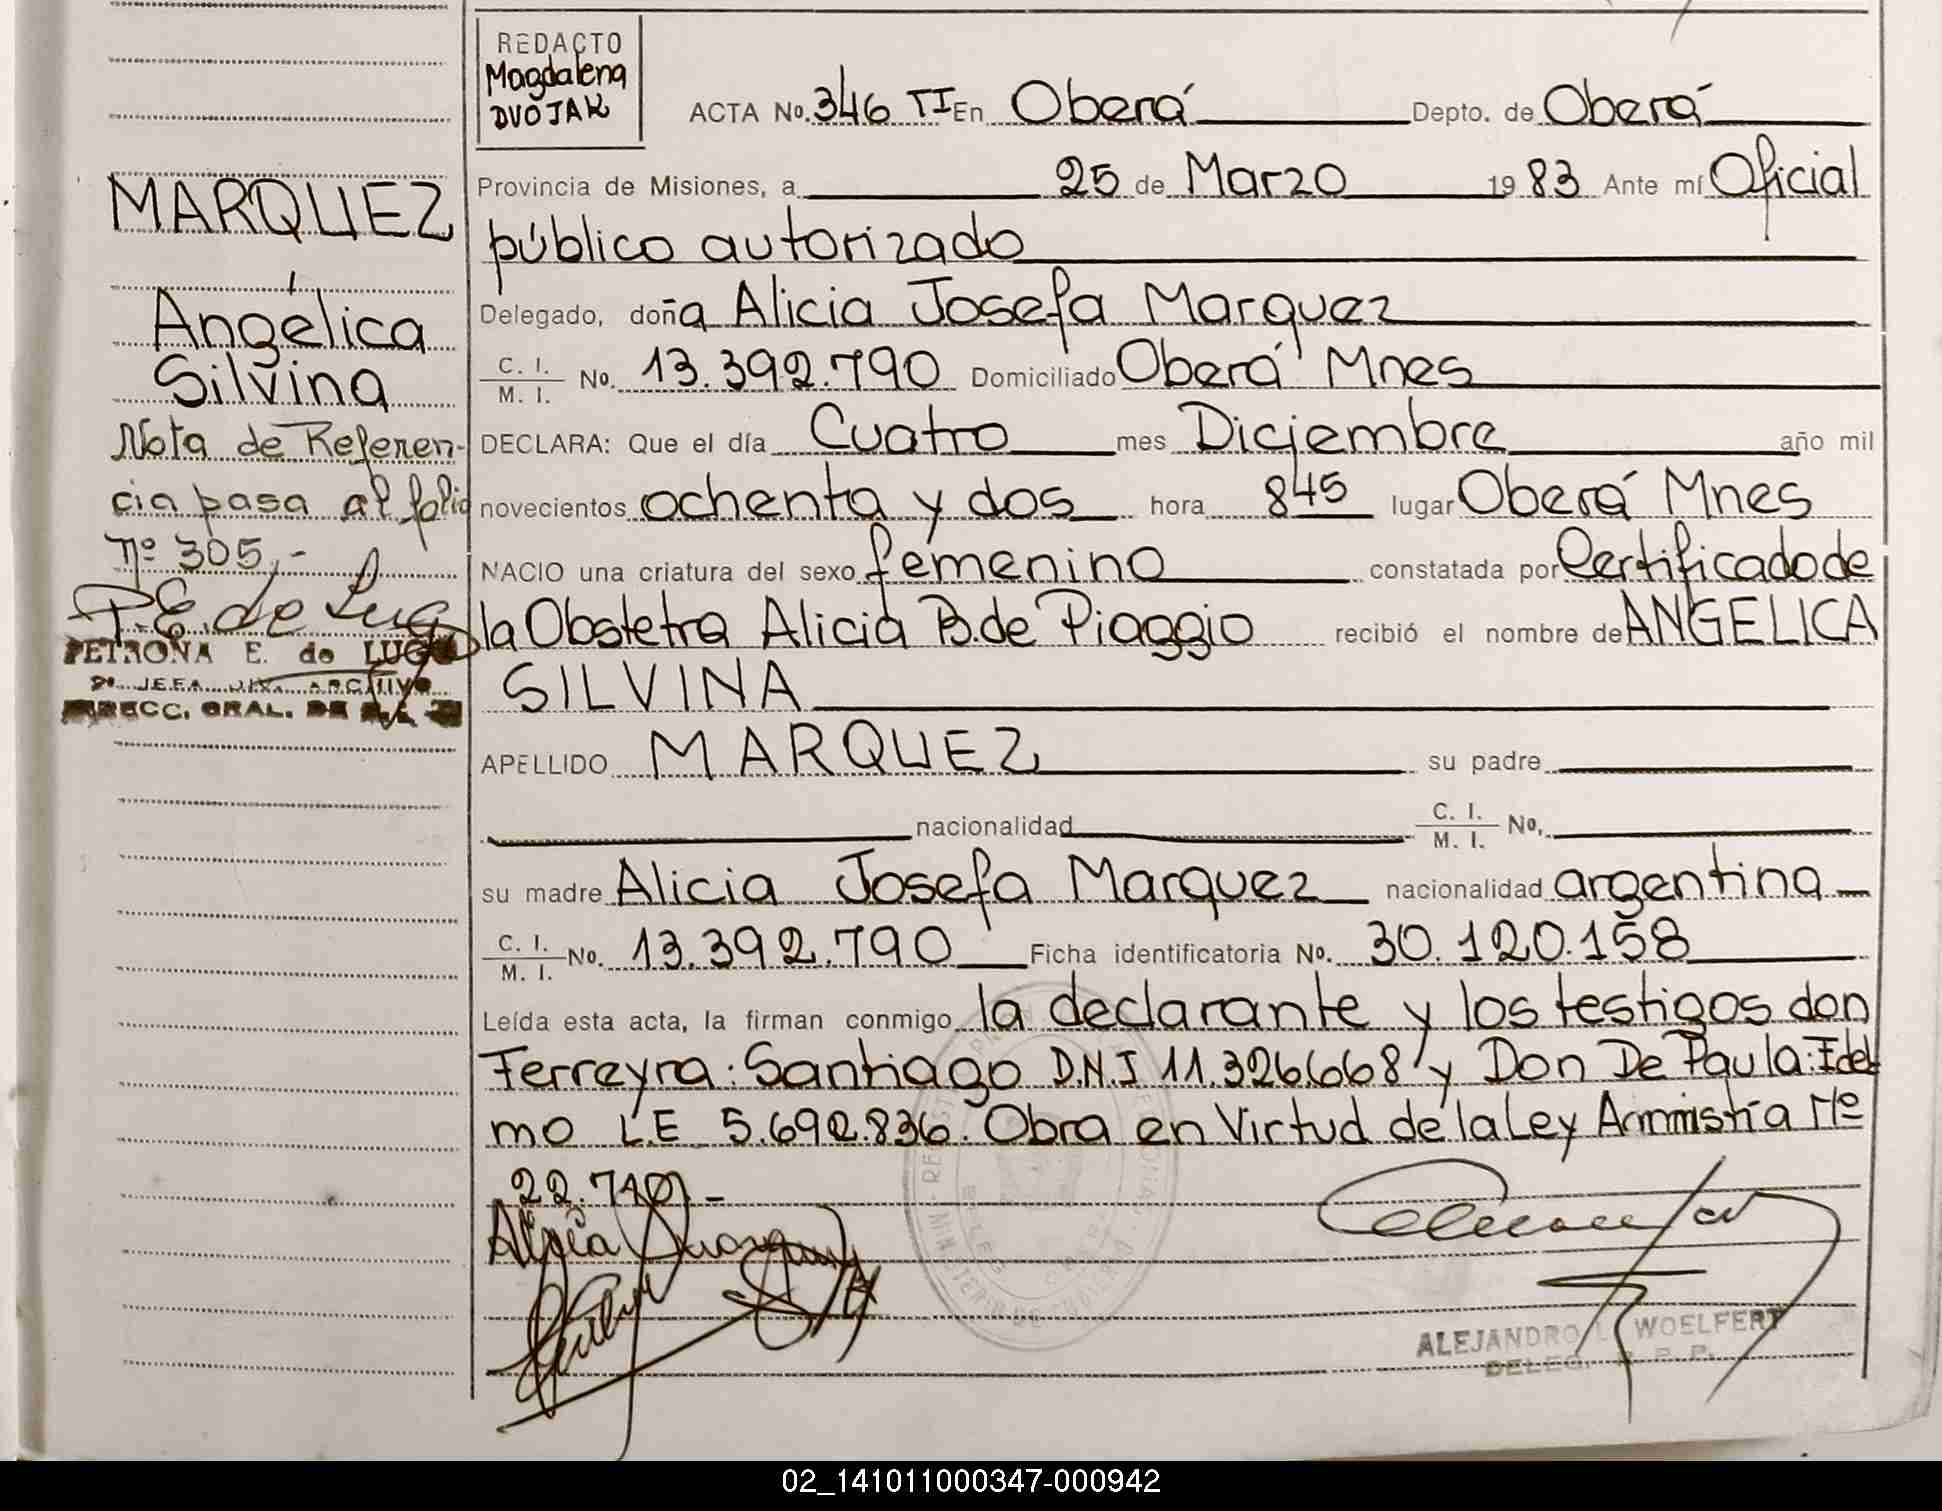 REDACTO
Magdalena
DVOJAK
ACTA No. 346 TI En Oberá Depto. de Oberá
Provincia de Misiones, a 25 de Marzo 1983 Ante mí Oficial
público autorizado
Delegado, doña Alicia Josefa Marquez
C. I. / M. I. No. 13.392.790 Domiciliado Oberá Mnes
DECLARA: Que el día Cuatro mes Diciembre año mil
novecientos ochenta y dos hora 845 lugar Oberá Mnes
NACIO una criatura del sexo femenino constatada por Certificado de
la Obstetra Alicia B. de Piaggio recibió el nombre de ANGELICA
SILVINA
APELLIDO MARQUEZ su padre
nacionalidad C. I. / M. I. No.
su madre Alicia Josefa Marquez nacionalidad argentina
C. I. / M. I. No. 13.392.790 Ficha identificatoria No. 30.120.158
Leída esta acta, la firman conmigo la declarante y los testigos don
Ferreyra: Santiago D.N.I 11.326.668 y Don De Paula: Idel
mo L.E 5.692.836. Obra en Virtud de la Ley Ammistía Nº
22.710.-
Alicia Marquez
ALEJANDRO L. WOELFERT
DELEG. R. P. P.
MARQUEZ
Angélica
Silvina
Nota de Referen-
cia pasa al folio
nº 305.-
P.E. de Lugo
PETRONA E. de LUGO
2º JEFA DIV. ARCHIVO
DIRECC. GRAL. DE
02_141011000347-000942